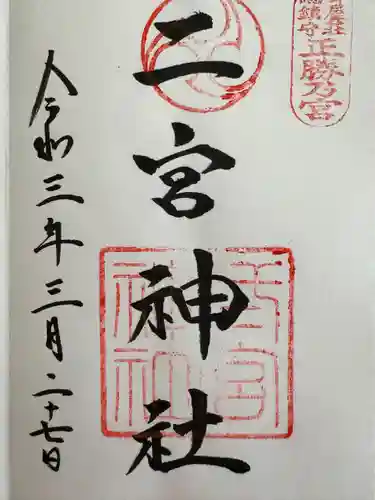 正勝乃宮
鎮守
二宮神社
二宮神社
令和三年三月二十七日